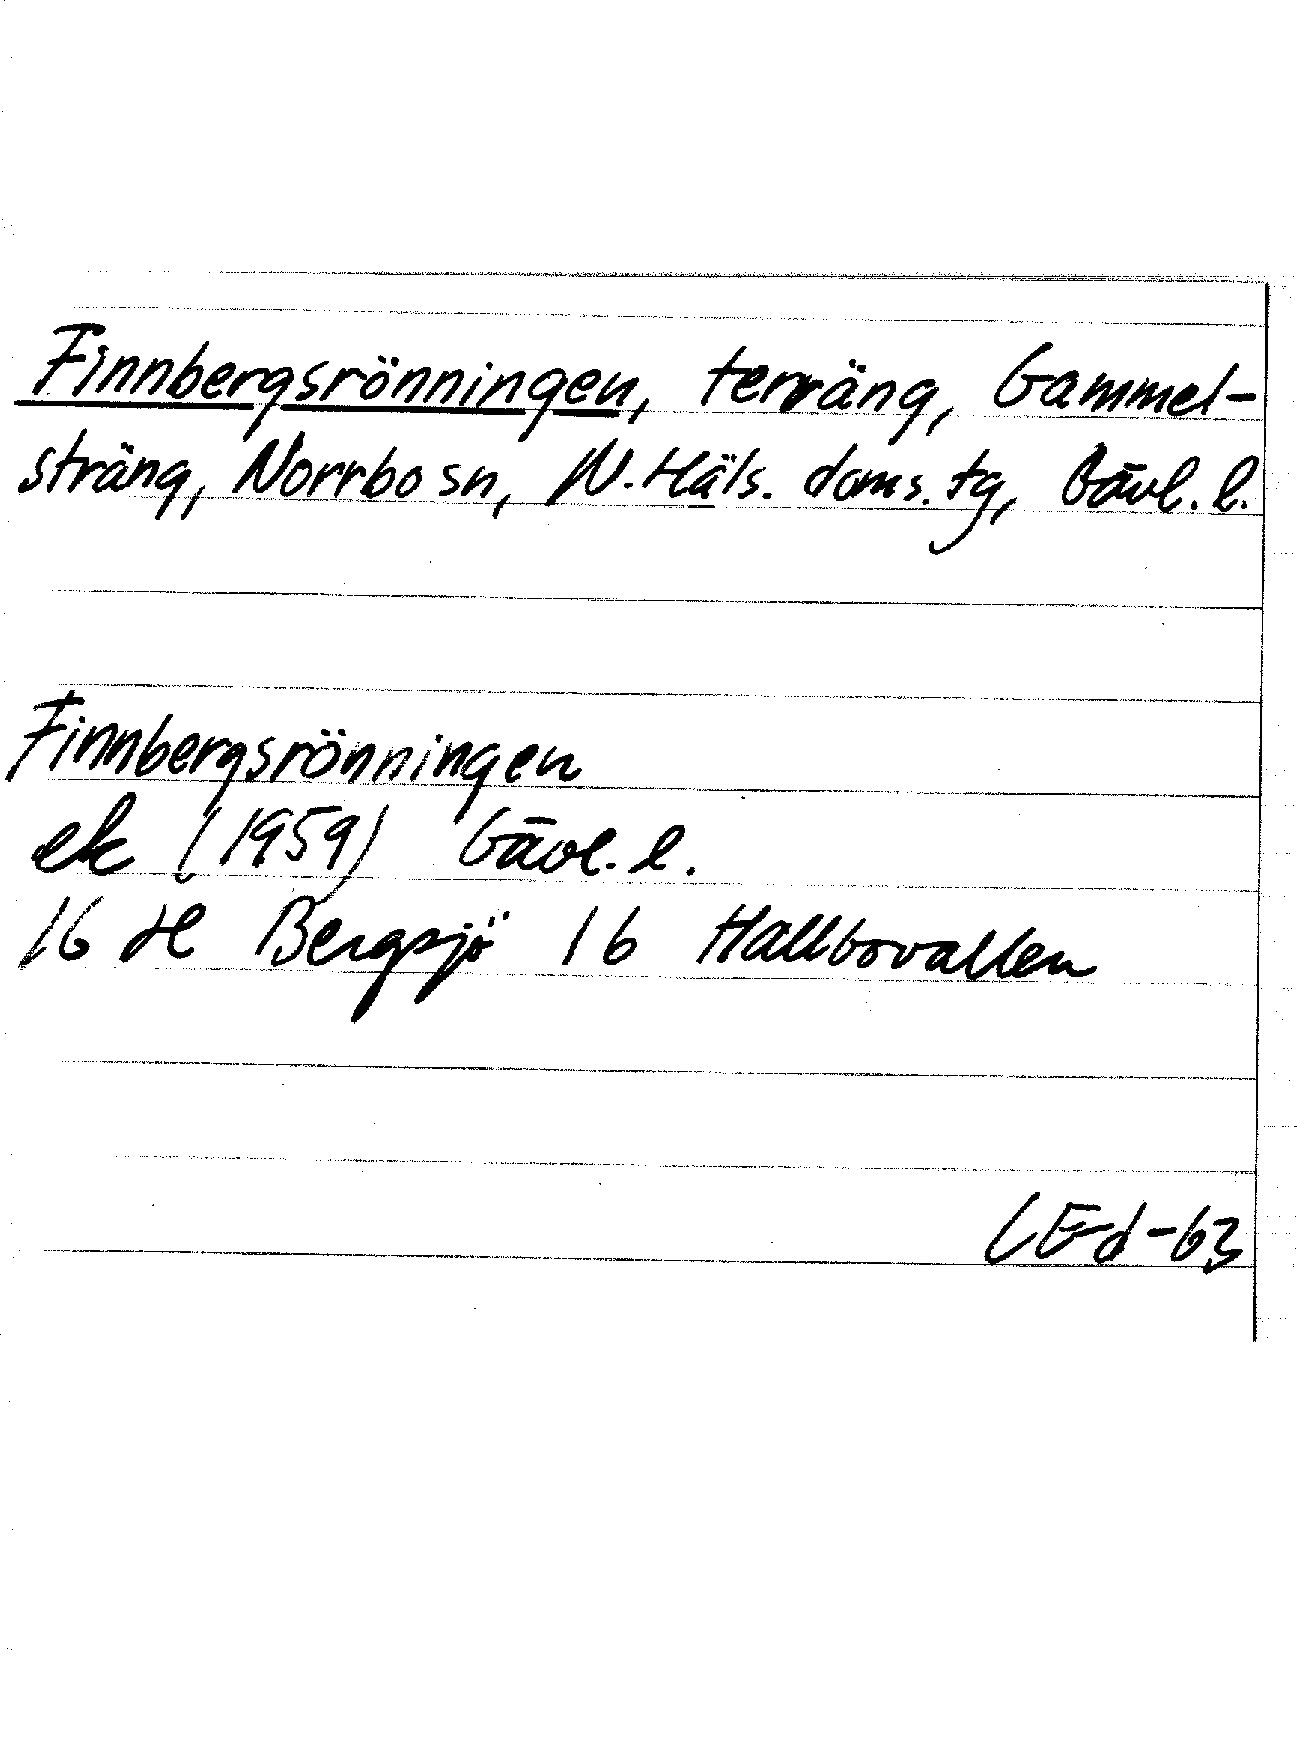 Finnbergsrönningen, terräng, Gammel-
sträng, Norrbo sn, N. Häls. doms. tg, Gävl. l.
Finnbergsrönningen
ek (1959) Gävl. l.
16 H Bergsjö 1 b Hallbovallen
CEd-63